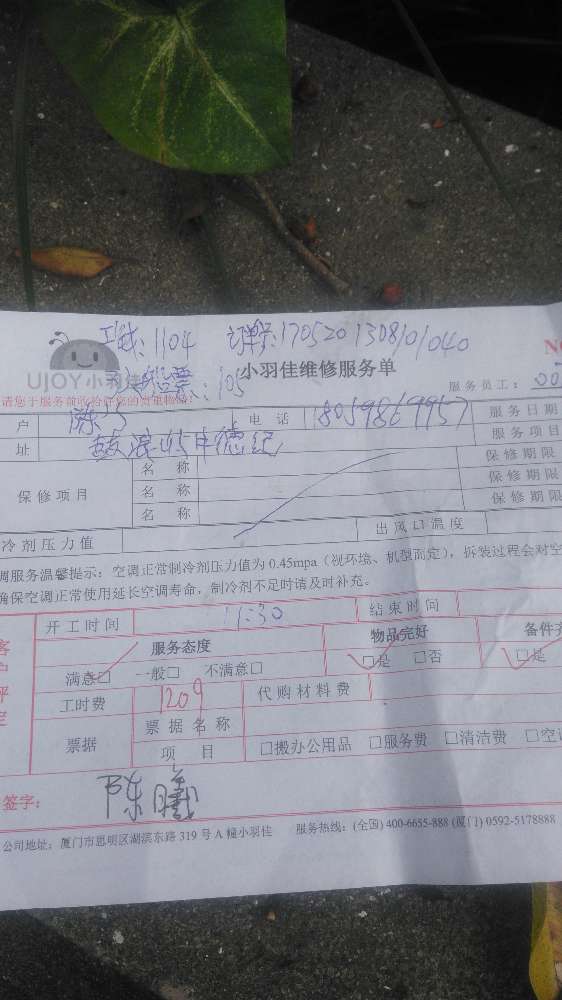 1104 1705201308101040
UJOY小羽佳 105 小羽佳维修服务单
服务员工: 00
户 陈 电话 18059869957 服务日期
址 德记 服务项目
保修项目 名称 保修期限
名称 保修期限
名称 保修期限
冷剂压力值 出风口温度
调服务温馨提示:空调正常制冷剂压力值为 0.45mpa(视环境、机型而定),拆装过程会对空
确保空调正常使用延长空调寿命,制冷剂不足时请及时补充。
开工时间 11:30 结束时间
客户评定 服务态度 物品完好 备件齐
满意□ 一般□ 不满意□ □是 □否 □是
工时费 120 代购材料费
票据 票据名称
项目 □搬办公用品 □服务费 □清洁费 □空
签字: 陈曦
公司地址:厦门市思明区湖滨东路 319 号 A 幢小羽佳 服务热线:(全国) 400-6655-888 (厦门) 0592-5178888